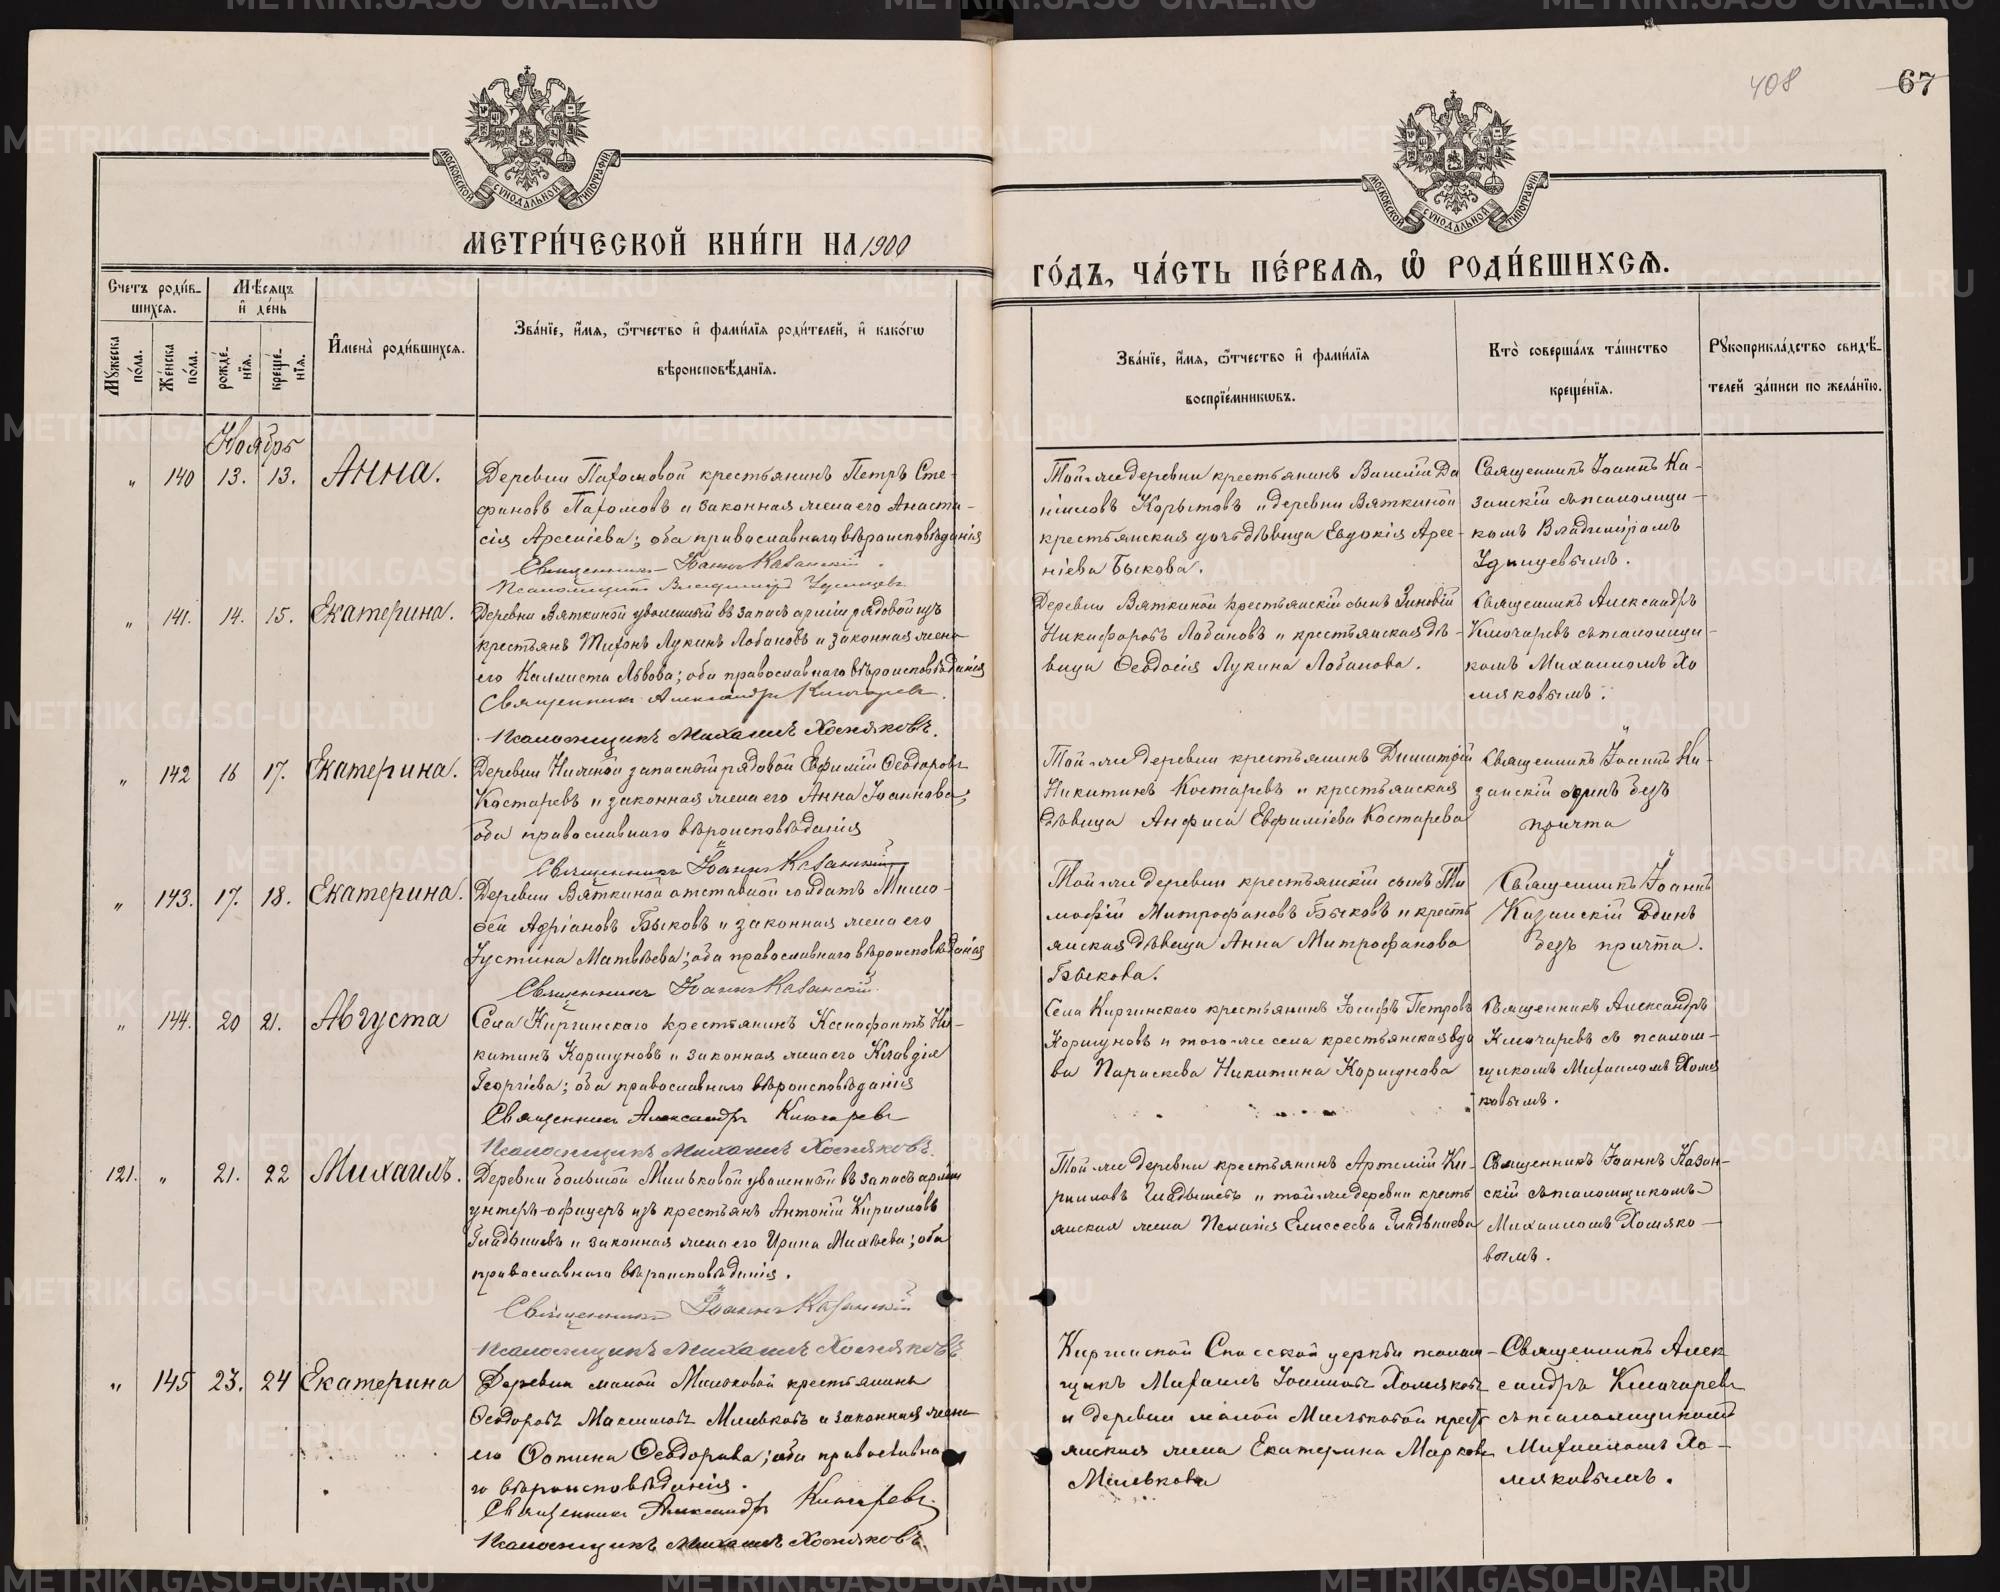 408
67
МОСКОВСКОЙ СѴНОДАЛЬНОЙ ТИПОГРАФІИ
МОСКОВСКОЙ СѴНОДАЛЬНОЙ ТИПОГРАФІИ
МЕТРИ́ЧЕСКОЙ КНИ́ГИ НА 1900
ГО́ДЪ, ЧА́СТЬ ПЕ́РВАЯ, Ѡ҆ РОДИ́ВШИХСЯ.
Счетъ роди́в-
шихся.
Мѣ́сяцъ
и҆ де́нь
Мꙋжеска по́ла.
Же́нска по́ла.
рожде́-
нїя.
креще́-
нїя.
И҆мена̀ роди́вшихся.
Зва́нїе, и҆́мя, ѻ҆́тчество и҆ фами́лїя роди́телей, и҆ како́гѡ
вѣроисповѣ́данїя.
Зва́нїе, и҆́мя, ѻ҆́тчество и҆ фами́лїя
воспрїе́мникѡвъ.
Кто̀ соверша́лъ та́инство
креще́нїя.
Рꙋкоприкла́дство свидѣ́-
телей за́писи по жела́нїю.
Ноябрь
" 140 13. 13. Анна.
Деревни Пахомовой крестьянинъ Петръ Сте-
фановъ Пахомовъ и законная жена его Анаста-
сія Арсеніева; оба православнаго вѣроисповѣданія
Священникъ Іоаннъ Казанскій.
Псаломщикъ Владимиръ Удинцевъ
Той-же деревни крестьянинъ Василій Да
ніиловъ Корытовъ и деревни Вяткиной
крестьянская дочь дѣвица Евдокія Арсе-
ніева Быкова.
Священникъ Іоаннъ Ка-
занскій съ псаломщи-
комъ Владимиромъ
Удинцевымъ.
" 141. 14. 15. Екатерина.
Деревни Вяткиной уволенный въ запасъ арміи рядовой изъ
крестьянъ Тихонъ Лукинъ Лобановъ и законная жена
его Каллиста Львова; оба православнаго вѣроисповѣданія
Священникъ Александръ Ключаревъ.
Псаломщикъ Михаилъ Хомяковъ.
Деревни Вяткиной крестьянскій сынъ Зиновій
Никифоровъ Лобановъ и крестьянская дѣ-
вица Ѳеодосія Лукина Лобанова.
Священникъ Александръ
Ключаревъ съ псаломщи-
комъ Михаиломъ Хо
мяковымъ.
" 142 16 17. Екатерина.
Деревни запасный рядовой Евфимій Ѳеодоровъ
Костаревъ и законная жена его Анна Іоаннова;
оба православнаго вѣроисповѣданія
Священникъ Іоаннъ Казанскій
Той-же деревни крестьянинъ Димитрій
Никитинъ Костаревъ и крестьянская
дѣвица Анфиса Евфиміева Костарева
Священникъ Іоаннъ Ка-
занскій одинъ безъ
причта
" 143. 17. 18. Екатерина.
Деревни Вяткиной отставной солдатъ
Адріановъ Быковъ и законная жена его
Іустина Матвѣева; оба православнаго вѣроисповѣданія
Священникъ Іоаннъ Казанскій.
Той-же деревни крестьянскій сынъ Ти
мофій Митрофановъ Быковъ и кресть
янская дѣвица Анна Митрофанова
Быкова.
Священникъ Іоаннъ
Казанскій одинъ
безъ причта.
" 144. 20 21. Августа
Села Киргинскаго крестьянинъ Ксенофонтъ Ни-
китинъ Коршуновъ и законная жена его Клавдія
Георгіева; оба православнаго вѣроисповѣданія
Священникъ Александръ Ключаревъ
Псаломщикъ Михаилъ Хомяковъ.
Села Киргинскаго крестьянинъ Іосифъ Петровъ
Коршуновъ и того-же села крестьянская вдо
ва Параскева Никитина Коршунова
Священникъ Александръ
Ключаревъ съ псалом-
щикомъ Михаиломъ Хомя
ковымъ.
121. " 21. 22 Михаилъ.
Деревни большой Мильковой уволенный въ запасъ арміи
унтеръ-офицеръ изъ крестьянъ Антоній Кирилловъ
Гладышевъ и законная жена его Ирина Михѣева; оба
православнаго вѣроисповѣданія.
Священникъ Іоаннъ Казанскій
Псаломщикъ Михаилъ Хомяковъ
Той-же деревни крестьянинъ Артемій Ки-
рилловъ Гладышевъ и той-же деревни кресть
янская жена Пелагія Елисеева Гладышева
Священникъ Іоаннъ Казан-
скій съ псаломщикомъ
Михаиломъ Хомяко-
вымъ.
" 145 23. 24 Екатерина
Деревни малой Мильковой крестьянинъ
Ѳеодоръ Максимовъ Мильковъ и законная жена
его Фотина Ѳеодорова; оба православна
го вѣроисповѣданія.
Священникъ Александръ Ключаревъ.
Псаломщикъ Михаилъ Хомяковъ.
Киргинской Спасской церкви псалом-
щикъ Михаилъ Іоанновъ Хомяковъ
и деревни малой Мильковой крест
янская жена Екатерина Маркова
Милькова
Священникъ Алек
сандръ Ключаревъ
съ псаломщикомъ
Михаиломъ Хо-
мяковымъ.
METRIKI.GASO-URAL.RU